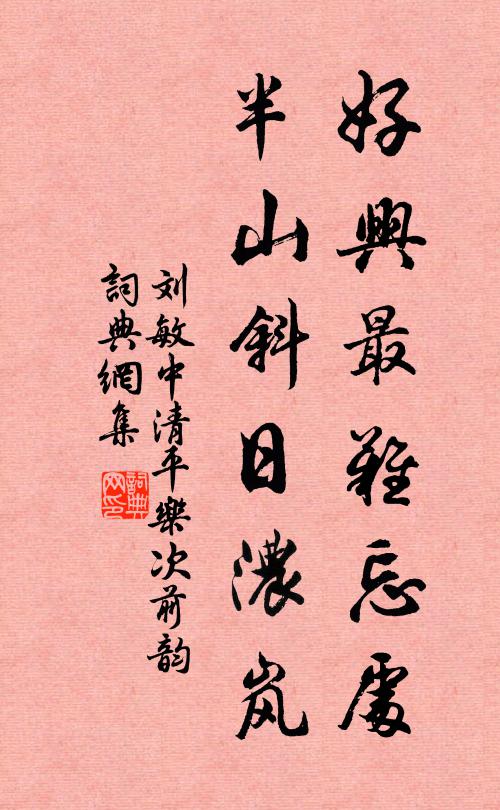 好興最難忘處
半山斜日濃岚
刘敏中清平樂次前韵
詞典網集
詞典
网印